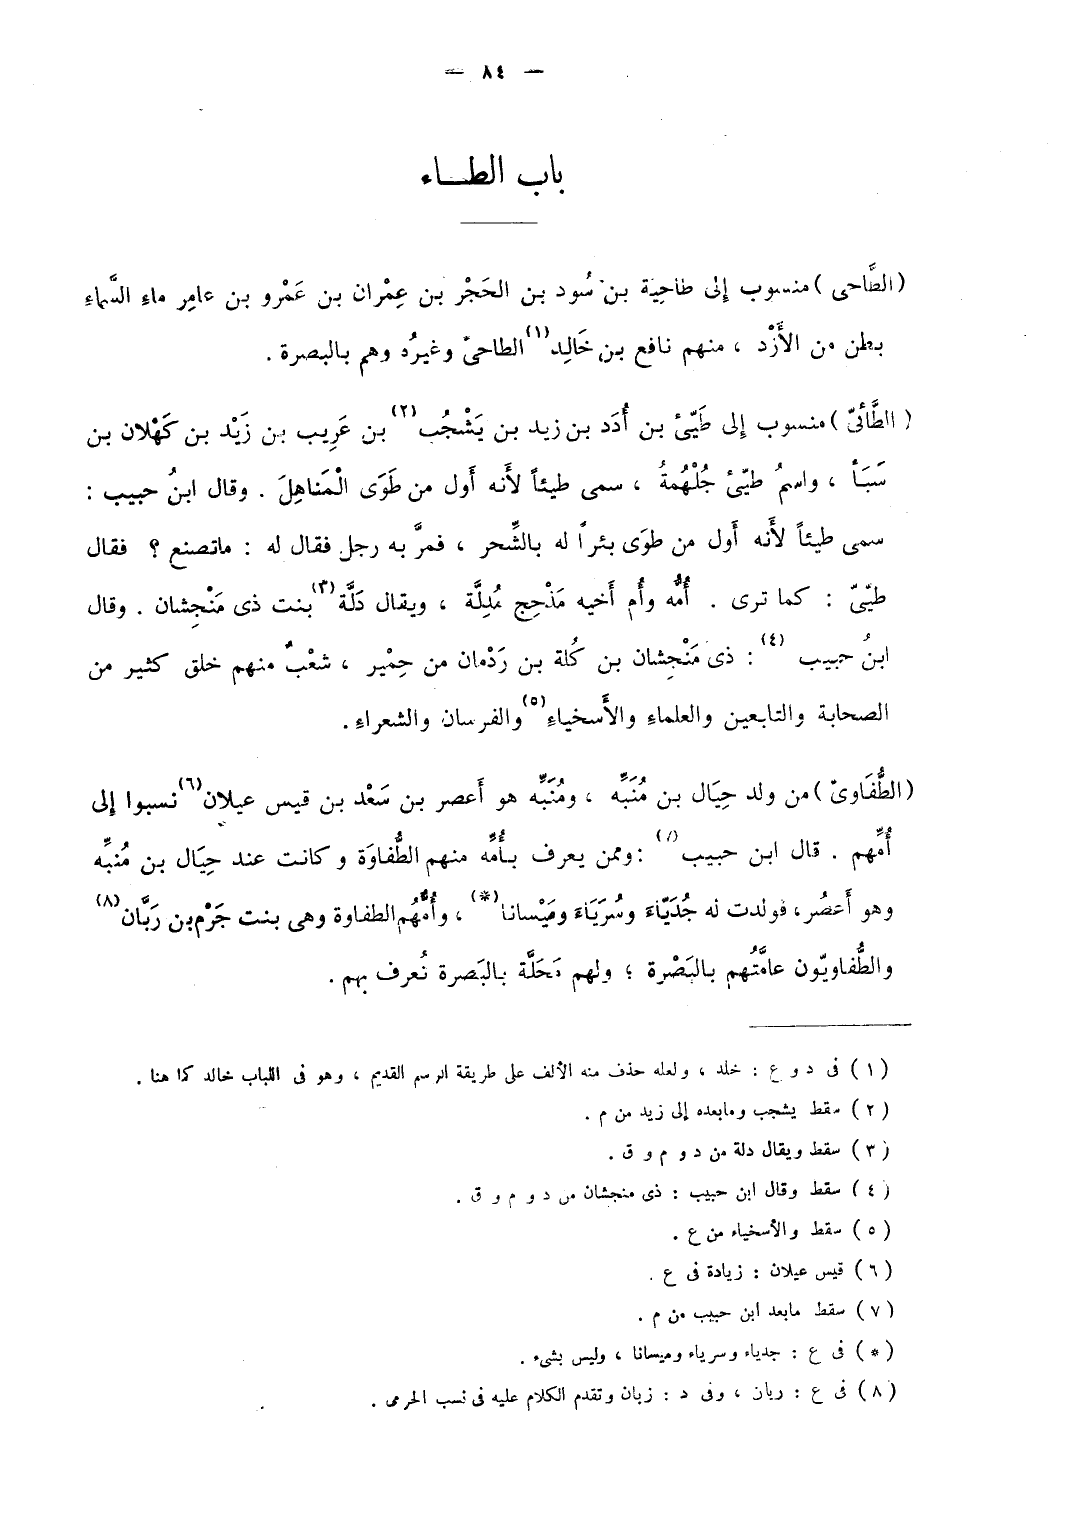 — ٨٤ —
باب الطـــاء
(الطَّاحى) منسوب إلى طاحِيَة بن سُود بن الحَجْر بن عِمْران بن عَمْرو بن عامِر ماءِ السَّماء
بطن من الأَزْد ، منهم نافع بن خَالِد(١) الطاحىّ وغيرُه وهم بالبصرة .
(الطَّائىّ) منسوب إلى طَيّئ بن أُدَد بن زيد بن يَشْجُب(٢) بن عَرِيب بن زَيْد بن كَهْلان بن
سَبَأ ، واسمُ طيّئ جُلْهُمةُ ، سمى طيئاً لأَنه أَول من طَوَى الْمَناهِلَ . وقال ابنُ حبيب :
سمى طيئاً لأَنه أَول من طوَى بئراً له بالشِّحر ، فمرَّ به رجل فقال له : ماتصنع ؟ فقال
طيّئ : كما ترى . أُمُّه وأُم أَخيه مَذْحِج مُدِلَّة ، ويقال دَلَّة(٣) بنت ذى مَنْجِشان . وقال
ابنُ حبيب (٤) : ذى مَنْجِشان بن كُلة بن رَدْمان من حِمْير ، شعْبٌ منهم خلق كثير من
الصحابة والتابعين والعلماءِ والأَسخياءِ(٥) والفرسان والشعراءِ .
(الطُّفَاوىّ) من ولد حِيَال بن مُنَبِّه ، ومُنَبِّه هو أَعصر بن سَعْد بن قيس عيلان(٦) نسبوا إلى
أُمِّهم . قال ابن حبيب(٧) : وممن يعرف بأُمِّه منهم الطُّفاوَة وكانت عند حِيَال بن مُنبِّه
وهو أَعصُر، فولدت له جُدَيّاءَ وسُرَيَاءَ ومَيْسانا(*) ، وأُمُّهُم الطفاوة وهى بنت جَرْم بن رَبَّان(٨)
والطُّفاويّون عامَّتُهم بالبَصْرة ؛ ولهم مَحَلَّة بالبَصرة تُعرف بهم .
(١) فى د و ع : خلد ، ولعله حذف منه الألف على طريقة الرسم القديم ، وهو فى اللباب خالد كما هنا .
(٢) سقط يشجب ومابعده إلى زيد من م .
(٣) سقط ويقال دلة من د و م و ق .
(٤) سقط وقال ابن حبيب : ذى منجشان من د و م و ق .
(٥) سقط والأسخياء من ع .
(٦) قيس عيلان : زيادة فى ع .
(٧) سقط مابعد ابن حبيب من م .
(*) فى ع : جدياء وسرياء وميسانا ، وليس بشىء .
(٨) فى ع : ريان ، وفى د : زبان وتقدم الكلام عليه فى نسب الجرمى .